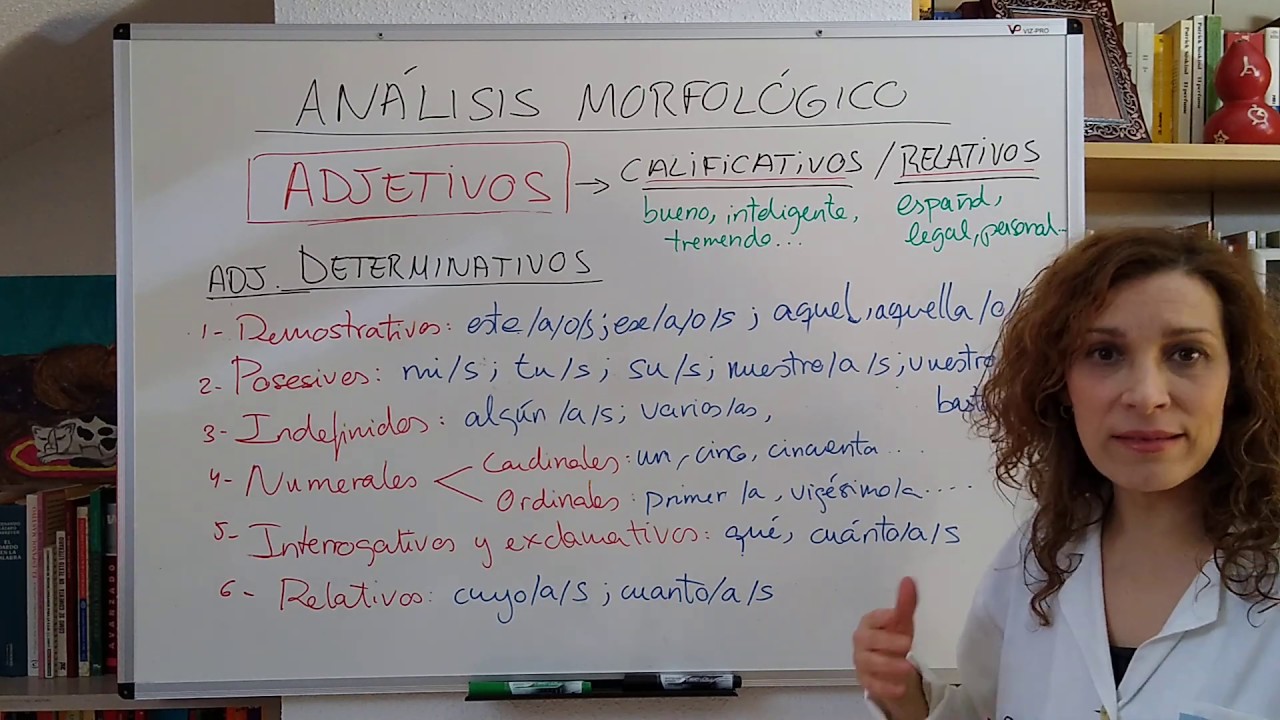 VIZ-PRO
ANÁLISIS MORFOLÓGICO
ADJETIVOS → CALIFICATIVOS / RELATIVOS
bueno, inteligente, tremendo...
español, legal, personal...
ADJ. DETERMINATIVOS
1- Demostrativos: este/a/o/s; ese/a/o/s; aquel, aquella/o/
2- Posesivos: mi/s; tu/s; su/s; nuestro/a/s; vuestro
3- Indefinidos: algún/a/s; varios/as,
4- Numerales
Cardinales: un, cinco, cincuenta...
Ordinales: primer/a, vigésimo/a....
5- Interrogativos y exclamativos: qué, cuánto/a/s
6- Relativos: cuyo/a/s; cuanto/a/s
AVANZADO
Patrick Süskind El perfume